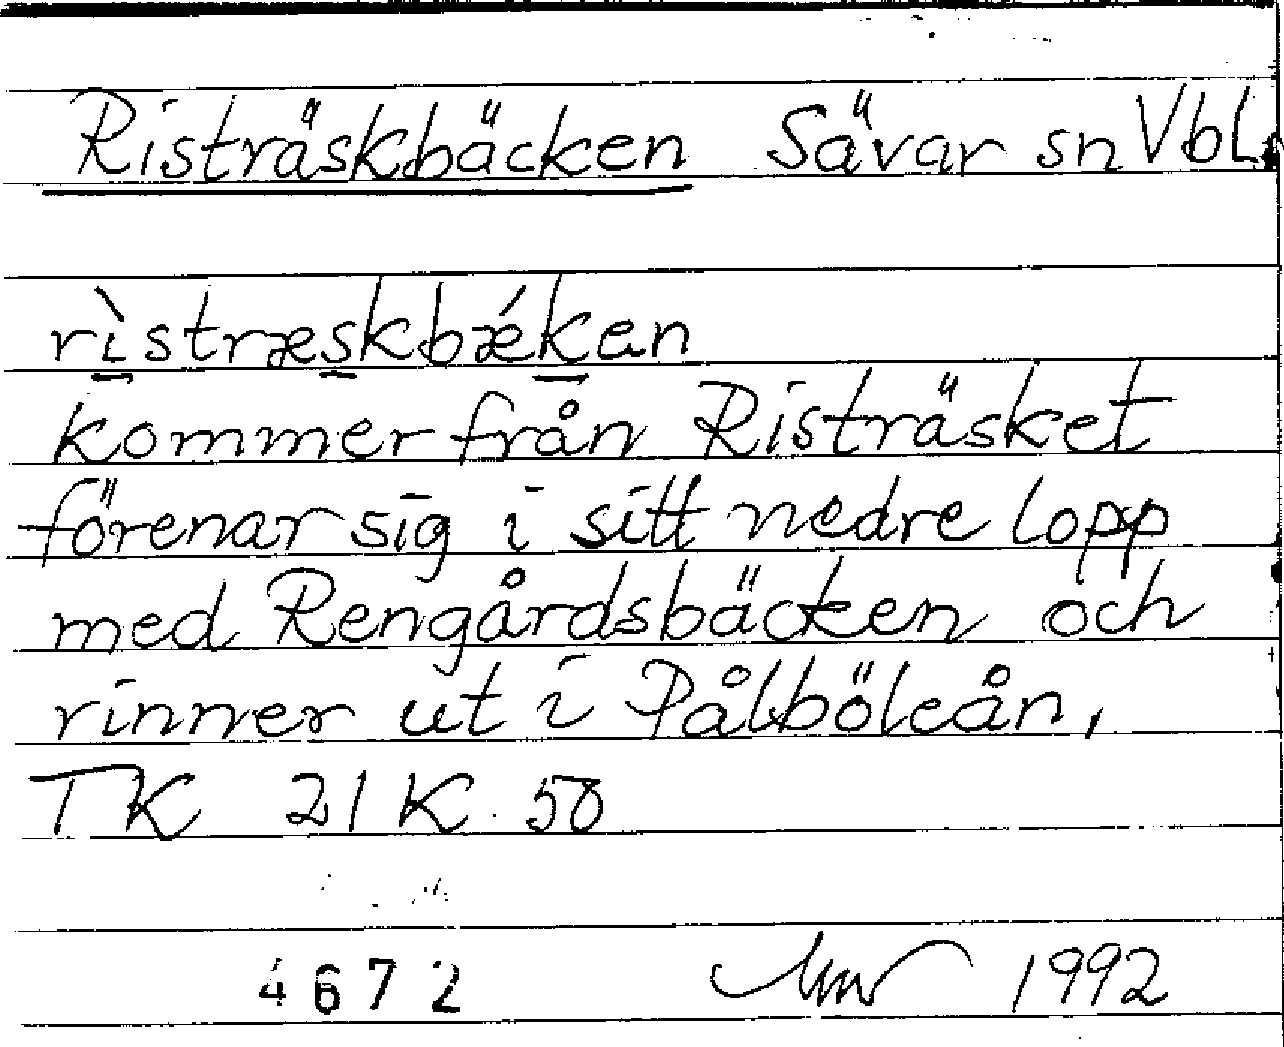 Risträskbäcken Sävar sn Vbl.
rìstræskbǽkan
kommer från Risträsket
förenar sig i sitt nedre lopp
med Rengårdsbäcken och
rinner ut i Pålböleån,
TK 21 K 5
4672 1992